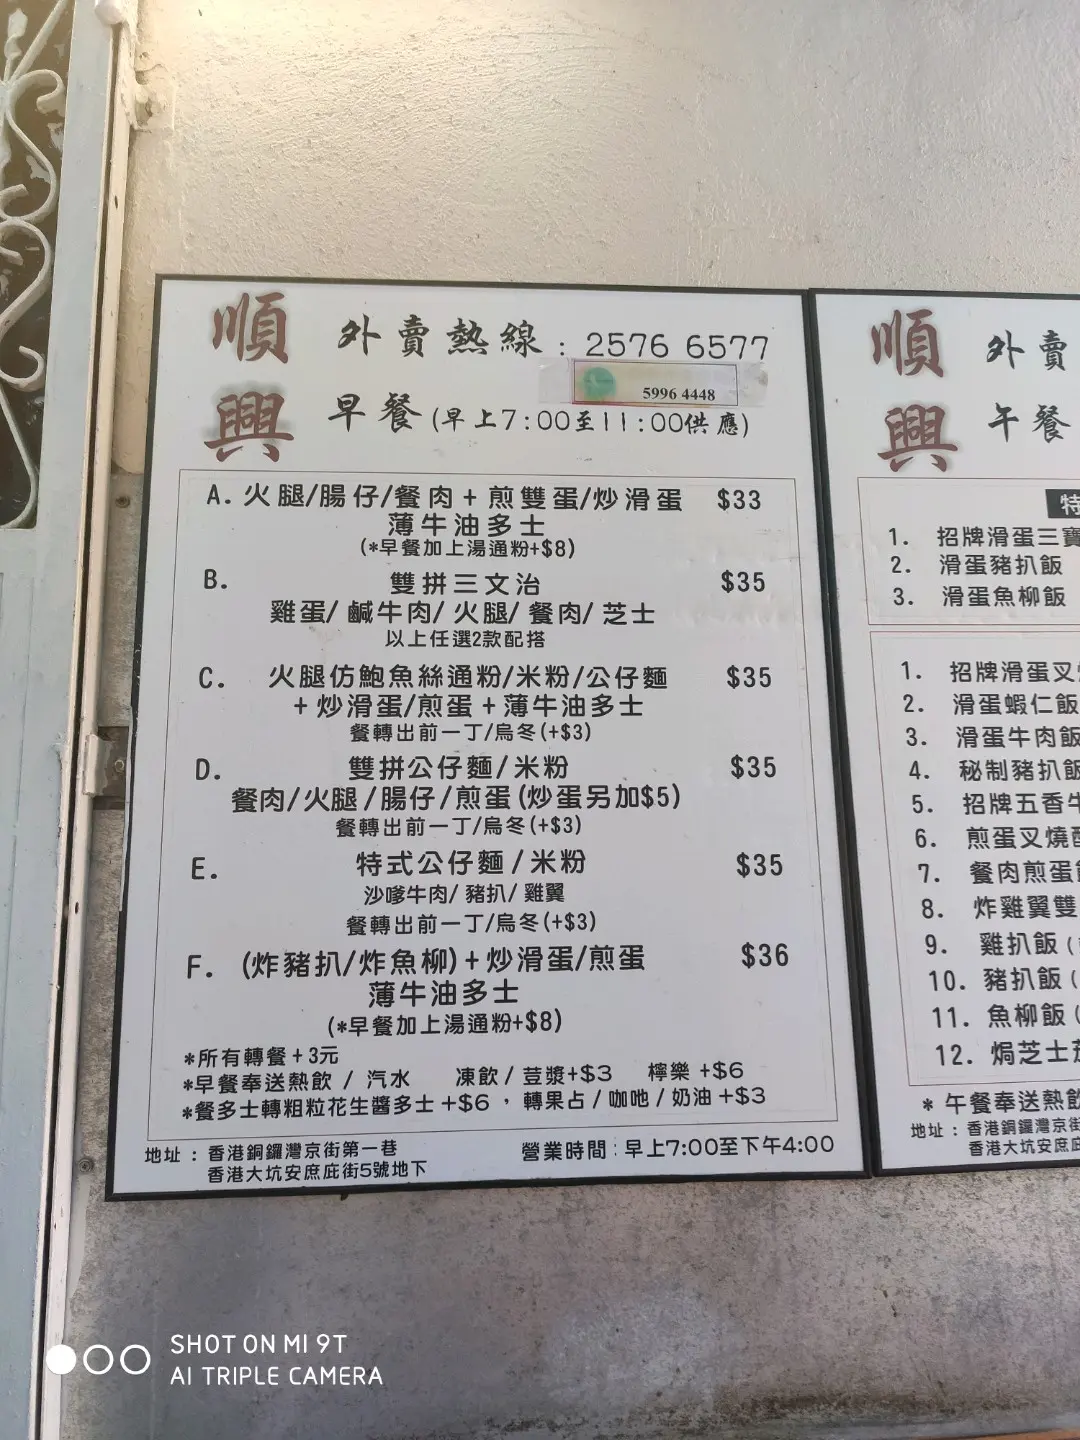 順興
外賣熱線：2576 6577
5996 4448
早餐(早上7:00至11:00供應)
A. 火腿/腸仔/餐肉 + 煎雙蛋/炒滑蛋 $33
薄牛油多士
(*早餐加上湯通粉+$8)
B. 雙拼三文治 $35
雞蛋/ 鹹牛肉/ 火腿/ 餐肉/ 芝士
以上任選2款配搭
C. 火腿仿鮑魚絲通粉/米粉/公仔麵 $35
+ 炒滑蛋/煎蛋 + 薄牛油多士
餐轉出前一丁/烏冬(+$3)
D. 雙拼公仔麵/米粉 $35
餐肉/火腿/腸仔/煎蛋(炒蛋另加$5)
餐轉出前一丁/烏冬(+$3)
E. 特式公仔麵/米粉 $35
沙嗲牛肉/ 豬扒/ 雞翼
餐轉出前一丁/烏冬(+$3)
F. (炸豬扒/炸魚柳)+炒滑蛋/煎蛋 $36
薄牛油多士
(*早餐加上湯通粉+$8)
*所有轉餐+3元
*早餐奉送熱飲 / 汽水 凍飲/荳漿+$3 檸樂+$6
*餐多士轉粗粒花生醬多士+$6，轉果占/咖吔/奶油+$3
地址：香港銅鑼灣京街第一巷
香港大坑安庶庇街5號地下
營業時間：早上7:00至下午4:00
順興
外賣
午餐
特
1. 招牌滑蛋三寶
2. 滑蛋豬扒飯
3. 滑蛋魚柳飯
1. 招牌滑蛋叉
2. 滑蛋蝦仁飯
3. 滑蛋牛肉飯
4. 秘制豬扒飯
5. 招牌五香牛
6. 煎蛋叉燒
7. 餐肉煎蛋
8. 炸雞翼雙
9. 雞扒飯(
10. 豬扒飯(
11. 魚柳飯(
12. 焗芝士
* 午餐奉送熱飲
地址：香港銅鑼灣京街
香港大坑安庶庇
SHOT ON MI 9T
AI TRIPLE CAMERA